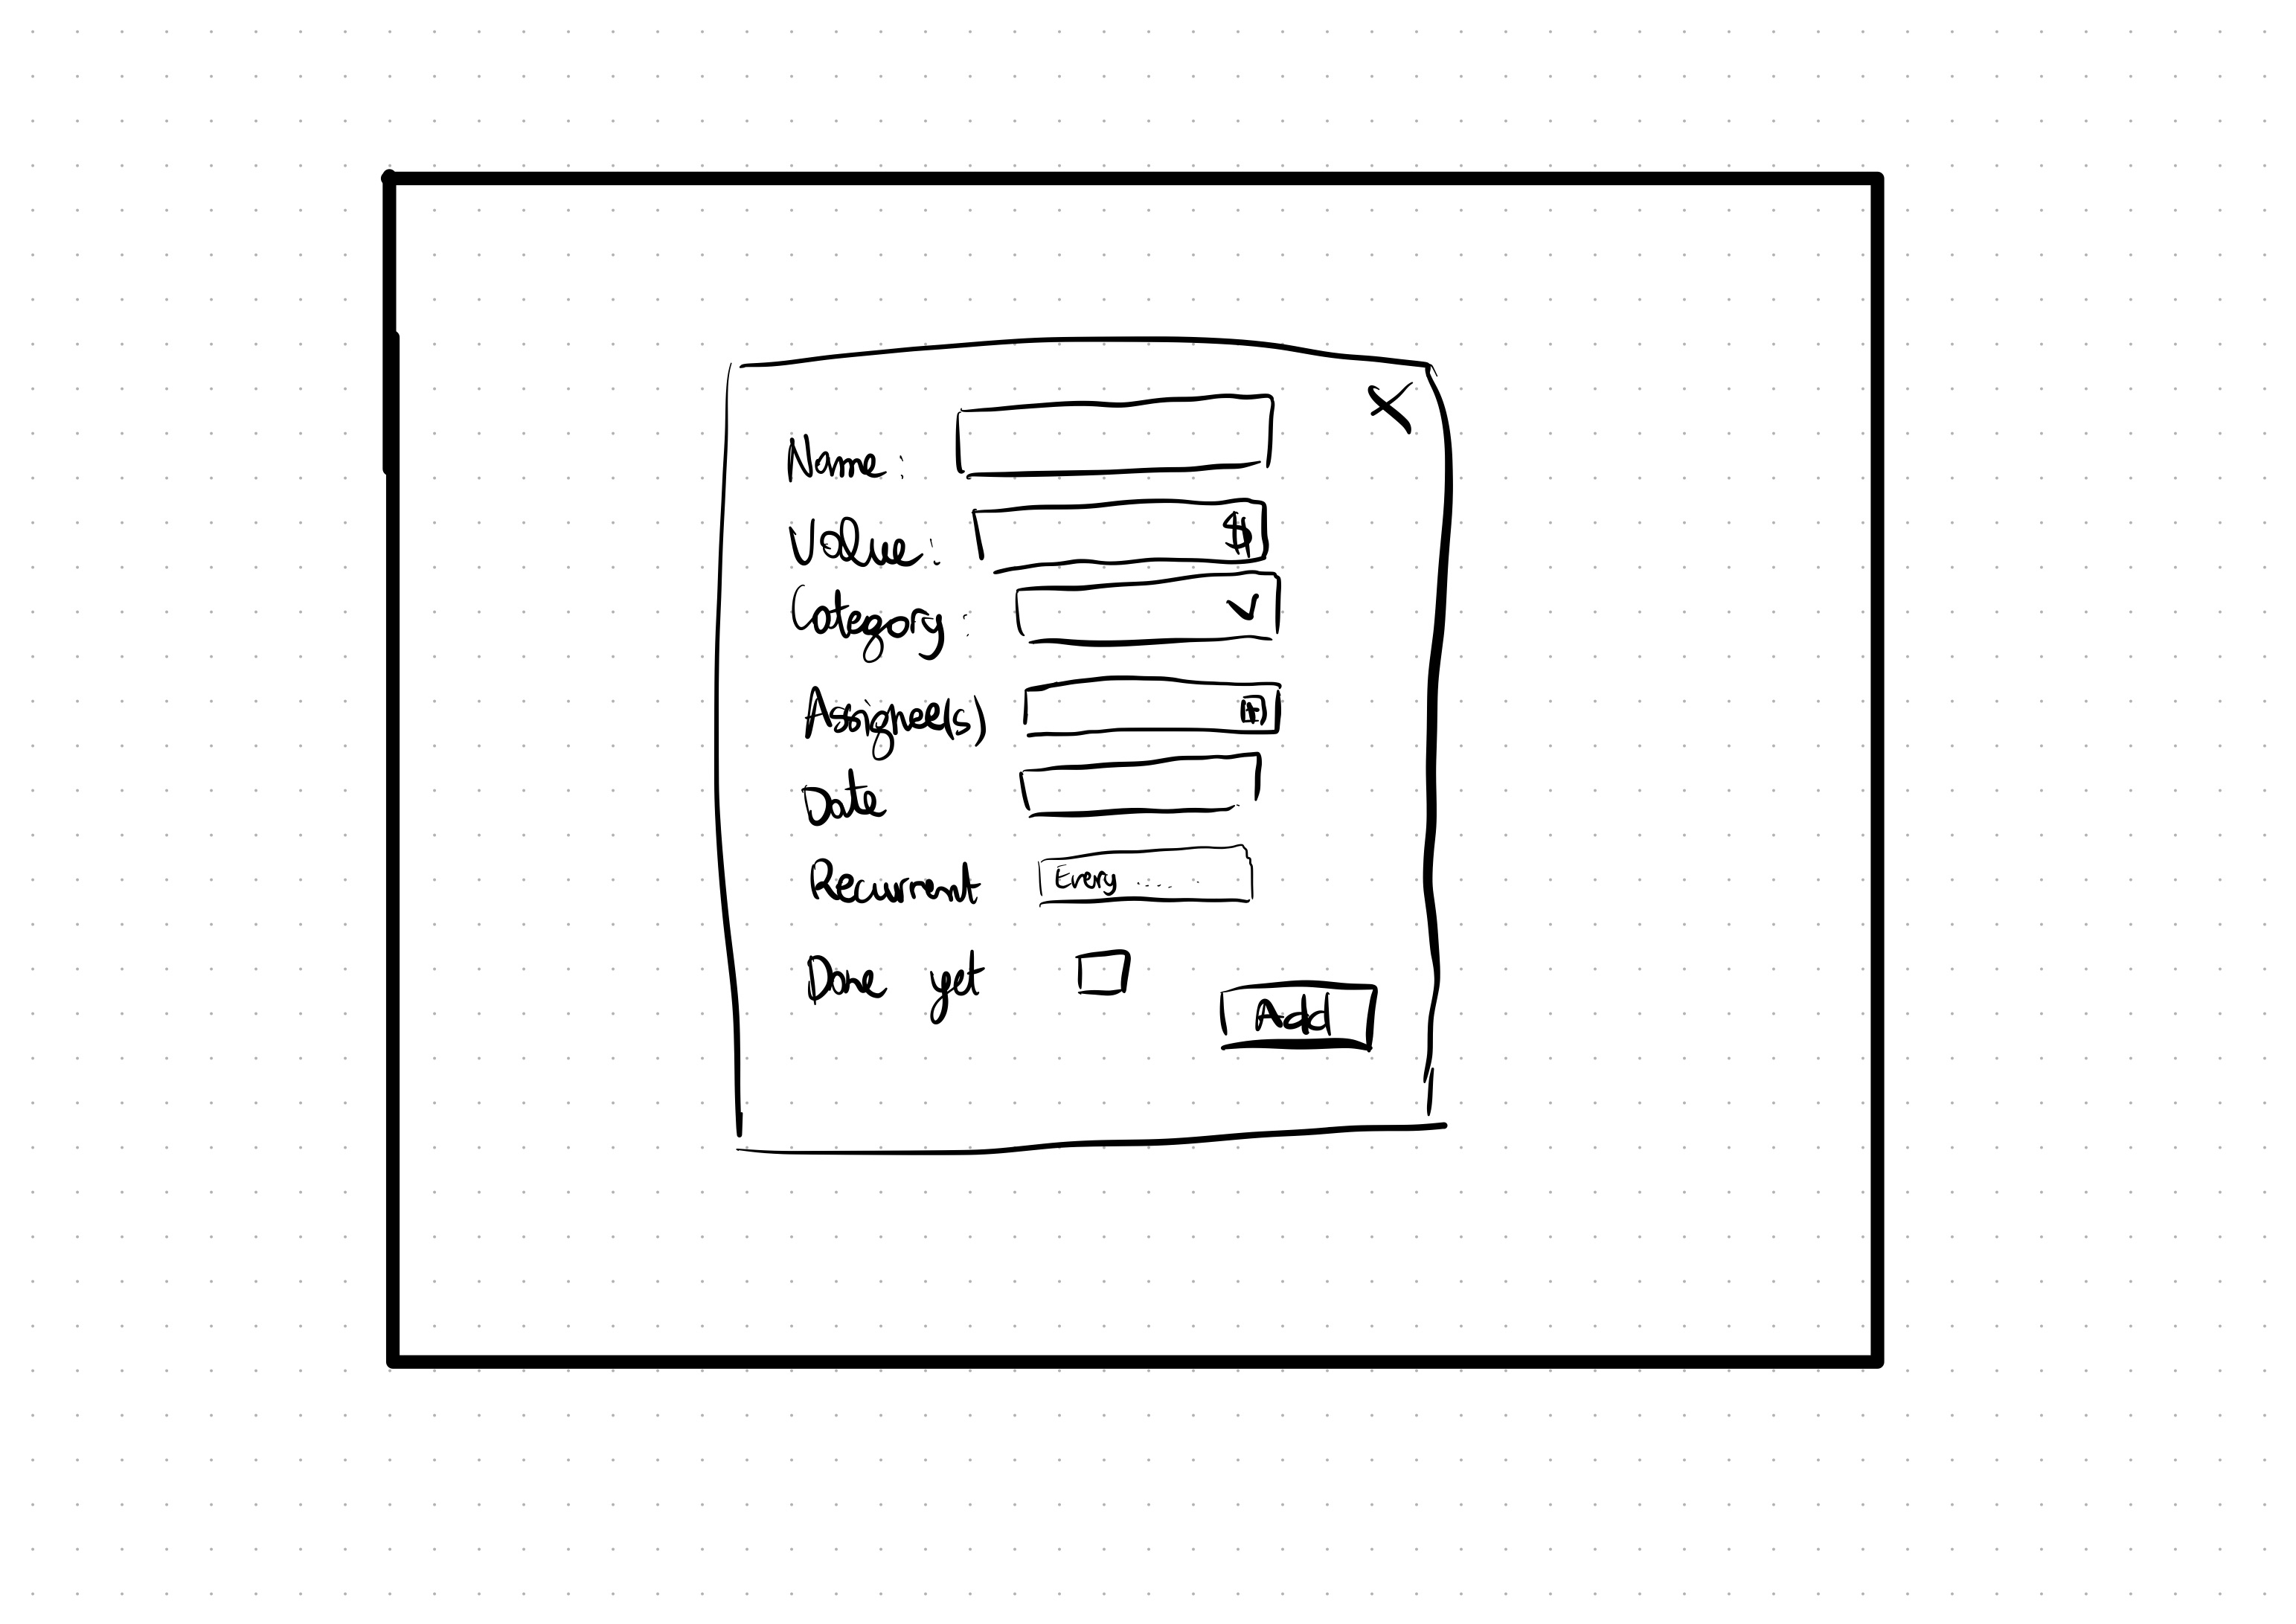 X
Name:
Value: $
Category:
Assignee(s) +
Date
Recurrent Every .....
Done yet
Add